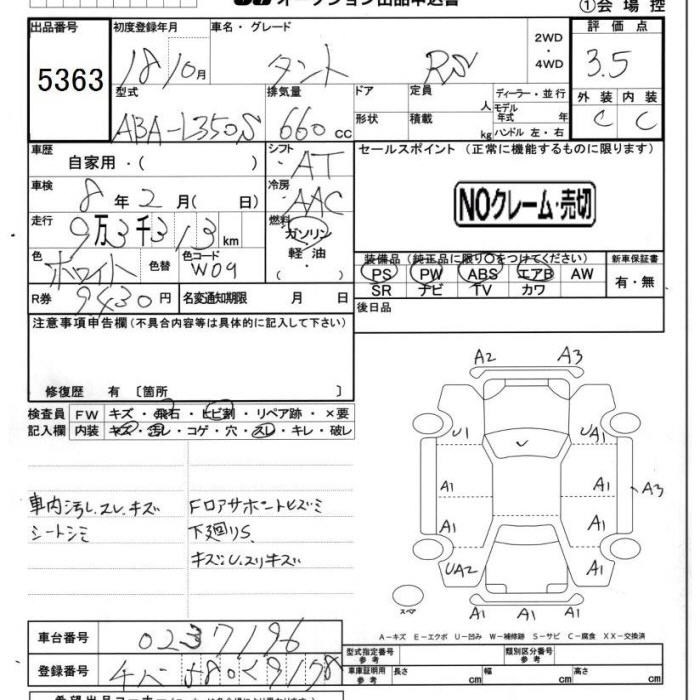 オークション出品申込書 ①会場控
出品番号 初度登録年月 車名・グレード 2WD・4WD 評価点
5363 18/10月 タント RS 3.5
型式 排気量 ドア 定員 人 ディーラー・並行 外装 内装
ABA-L350S 660cc 形状 積載 kg モデル年式 年 ハンドル 左・右 C C
車歴 自家用・( ) シフト AT セールスポイント (正常に機能するものに限ります)
車検 8年2月( 日) 冷房 AAC NOクレーム・売切
走行 9万3千313km 燃料 ガソリン 軽油 ・( )
色 ホワイト 色替 色コード W09
装備品(純正品に限り○をつけてください) 新車保証書
PS PW ABS エアB AW 有・無
SR ナビ TV カワ
R券 9430円 名変通知期限 月 日 後日品
注意事項申告欄(不具合内容等は具体的に記入して下さい)
修復歴 有 〔箇所 〕
検査員 FW キズ・飛石・ヒビ割・リペア跡・×要
記入欄 内装 キズ・汚レ・コゲ・穴・スレ・キレ・破レ
車内汚し.スレ.キズ
シートシミ
Fロアサポートヒズミ
下廻りS
キズ.U.スリキズ
A2 A3
U1 U UA1
A1 A1 A3
A1 A1
UA2 A1
スペア A1 A1
A-キズ E-エクボ U-凹み W-補修跡 S-サビ C-腐食 XX-交換済
車台番号 0237196
型式指定番号 参考 類別区分番号 参考
登録番号
車庫証明用 参考 長さ cm 幅 cm 高さ cm